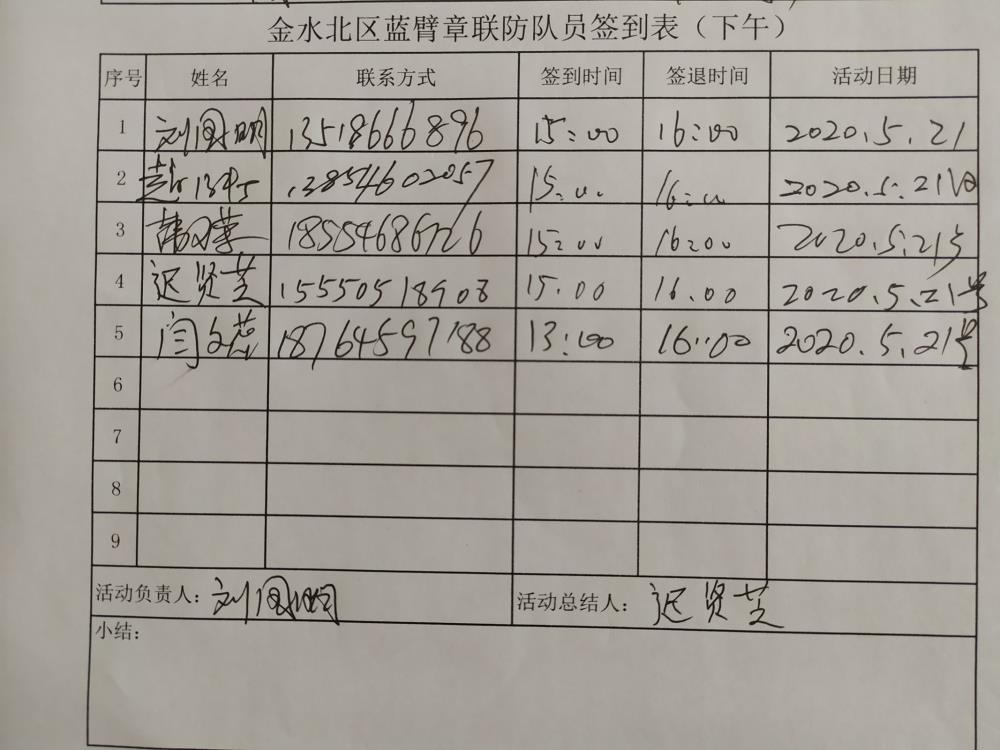 金水北区蓝臂章联防队员签到表（下午）
序号 姓名 联系方式 签到时间 签退时间 活动日期
1 刘国明 13518666896 15:00 16:00 2020.5.21
2 13854602057 15:00 16:00 2020.5.21日
3 15:00 16:00 2020.5.21
4 迟贤芝 15550518908 15.00 16.00 2020.5.21号
5 闫文燕 18764597188 13:00 16:00 2020.5.21号
6
7
8
9
活动负责人：刘国明 活动总结人：迟贤芝
小结：